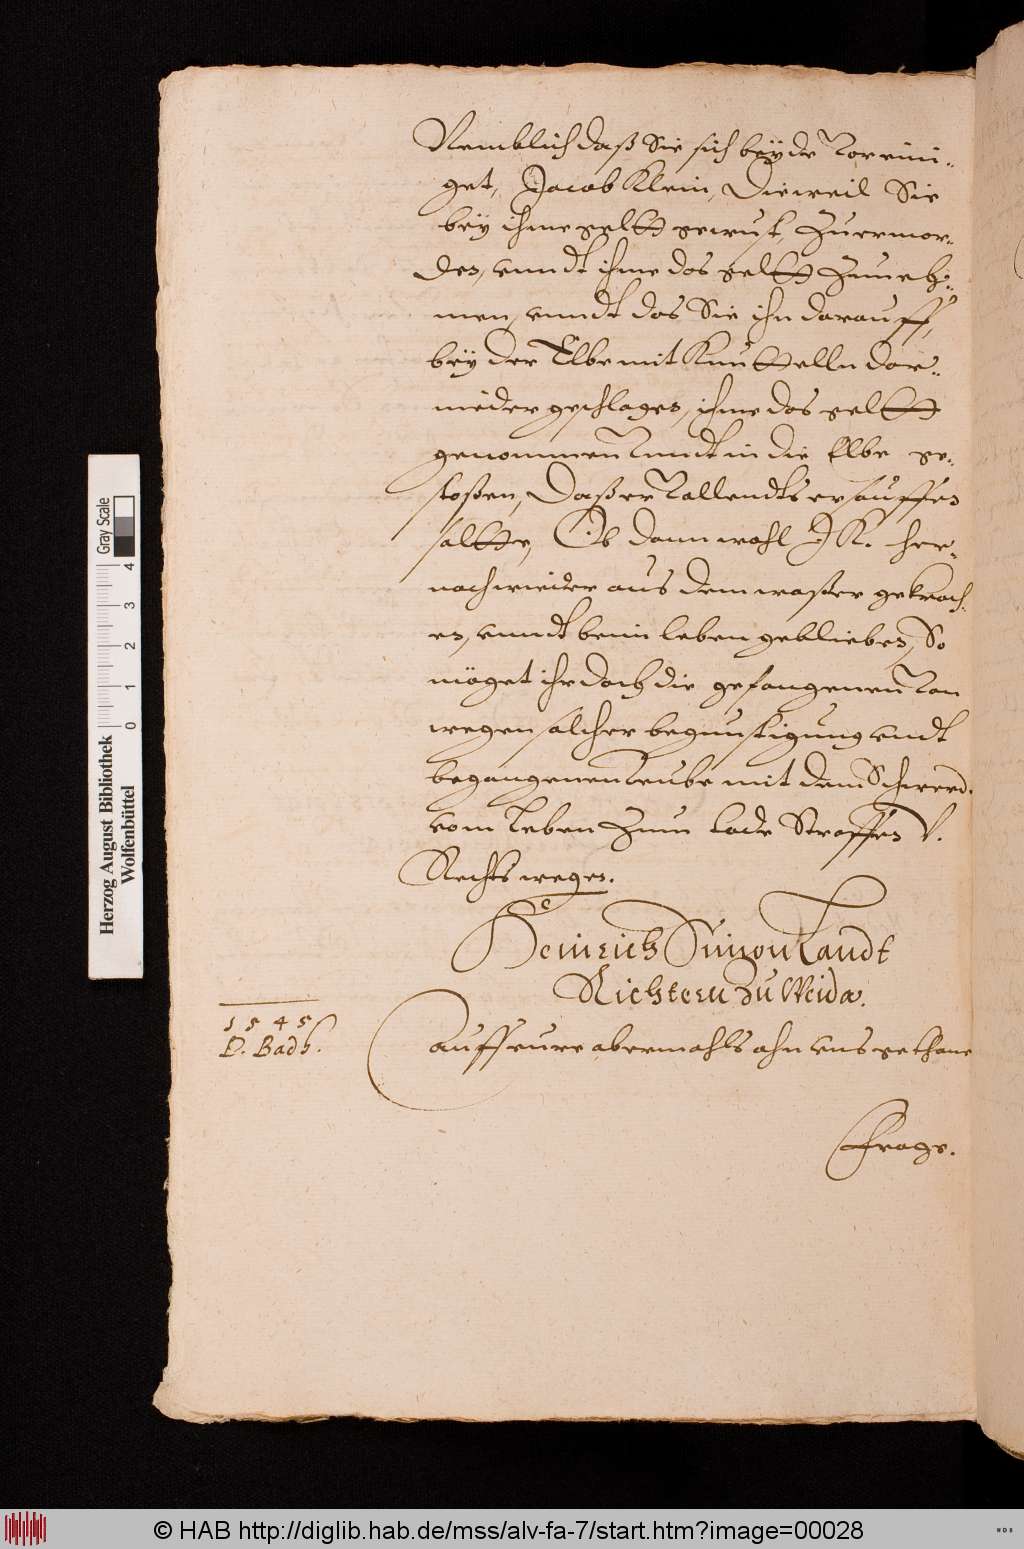 Nemblich daß Sie sich beÿde voreini-
get, Jacob Klein, Dieweil Sie
beÿ ihme geltt gewust, zuermor-
den, vnndt ihme das geltt zuneh-
men, vnndt das Sie ihn darauff,
beÿ der Elbe mit Knuttelln dar-
nieder geschlagen, ihme das geltt
genommen vnndt in die Elbe ge-
stoßen, Daß er vollendts ersauffen
soltte, Ob dann wohl J K. her-
nach wieder aus dem waßer gekroch-
en, vnndt beim leben geblieben, So
möget ihr doch die gefangenen von
wegen solcher begunstigung vndt
begangenen reube mit dem Schwerd.
vom leben zum tode Straffen V.
Rechts wegen.
Heinrich Simon Landt
Richtern zu Weida.
1545
D. Bads.
Auff eure abermahls ahn vns gethane
Frage.
Herzog August Bibliothek
Wolfenbüttel
0 1 2 3 4
Gray Scale
© HAB http://diglib.hab.de/mss/alv-fa-7/start.htm?image=00028